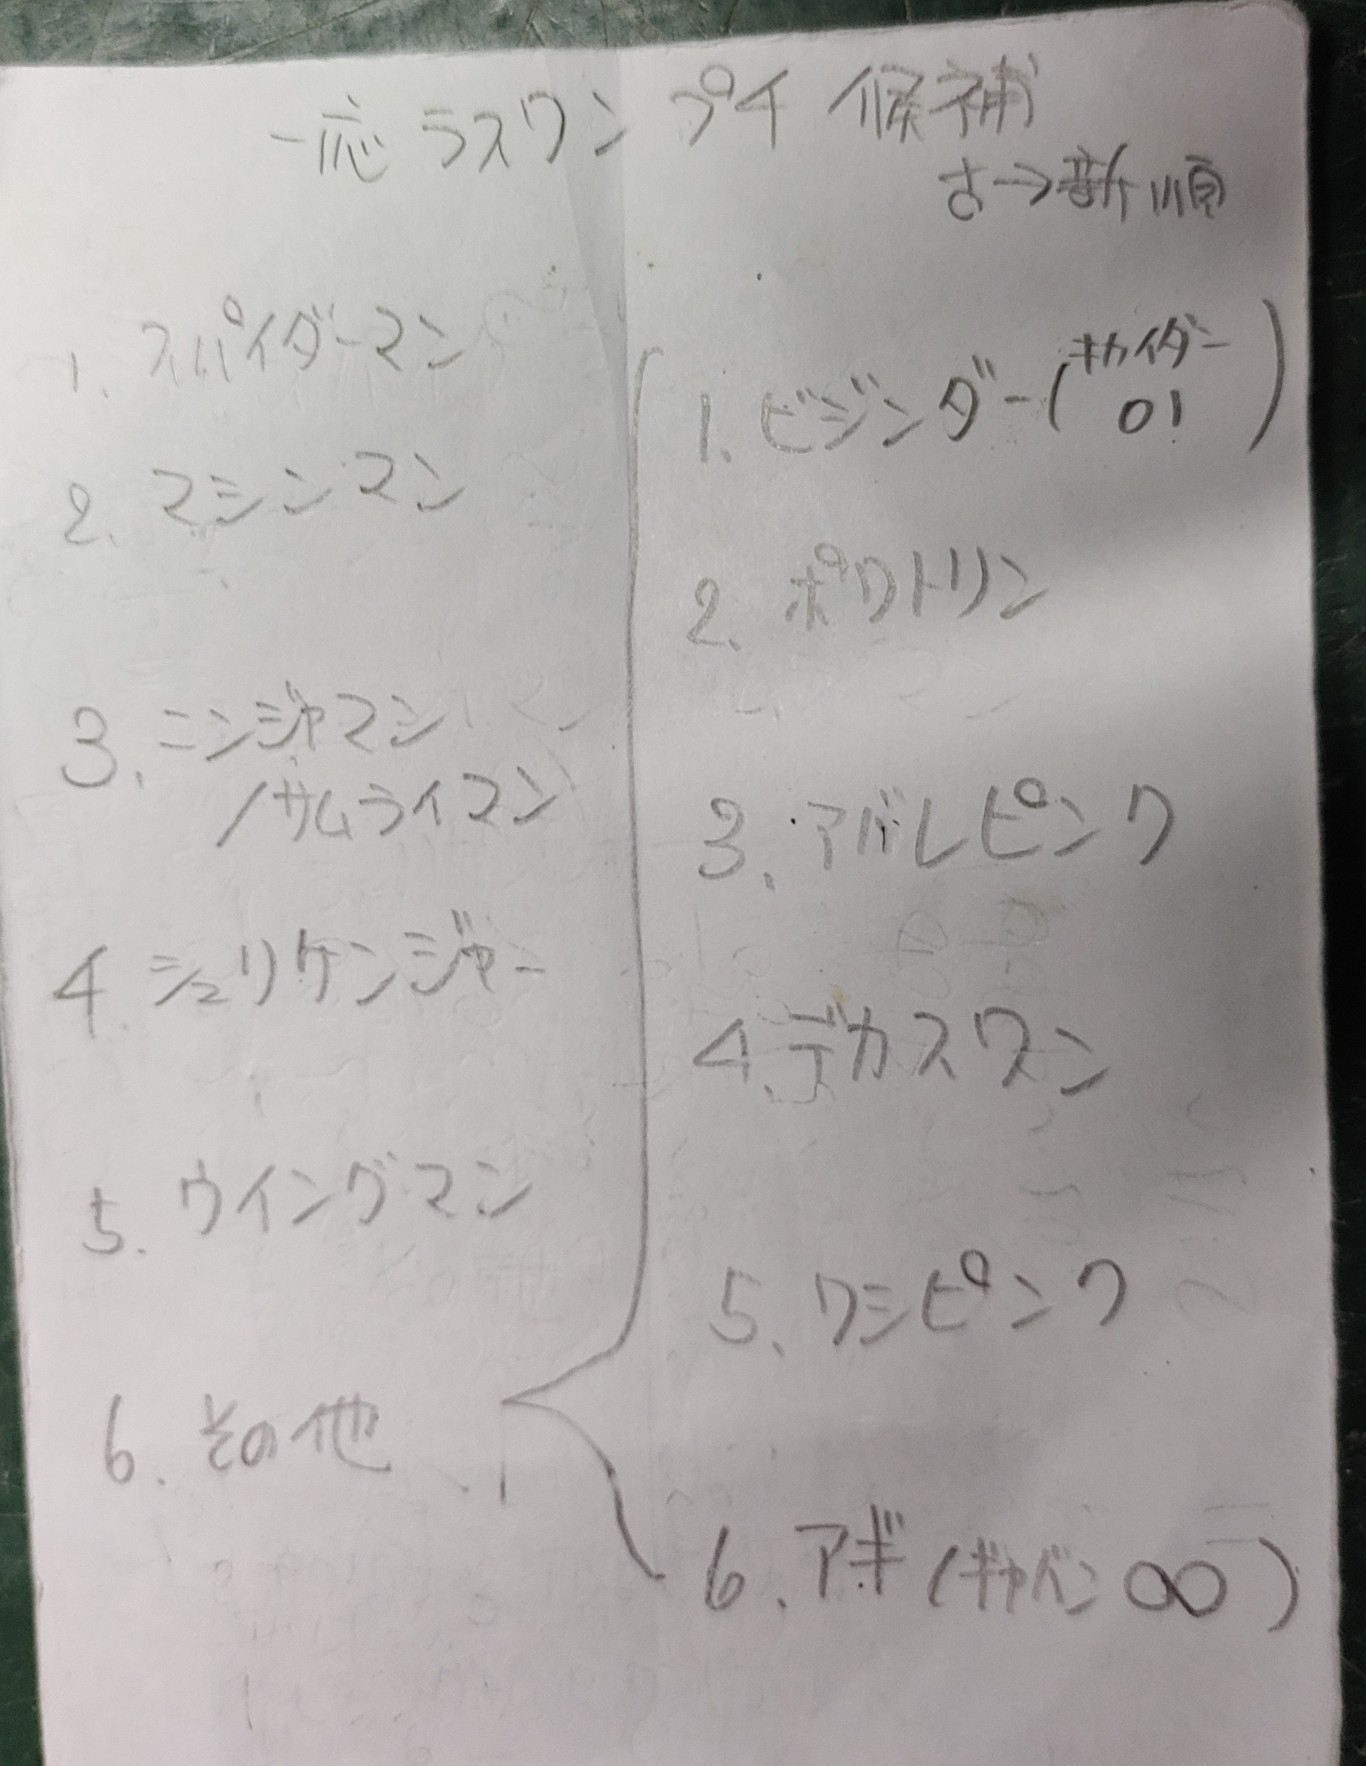 一応 ラスワン プチ 候補
古→新順
1. スパイダーマン
2. マシンマン
3. ニンジャマン
/サムライマン
4. シュリケンジャー
5. ウイングマン
6. その他
1. ビジンダー(キカイダー01)
2. ポワトリン
3. アバレピンク
4. デカスワン
5. ワシピンク
6. アギ(ギャバン∞)